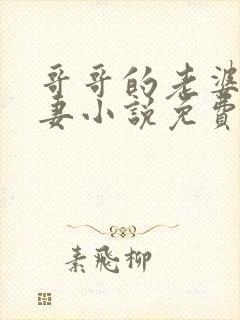 哥哥的老婆
妻小說免費
素飛柳